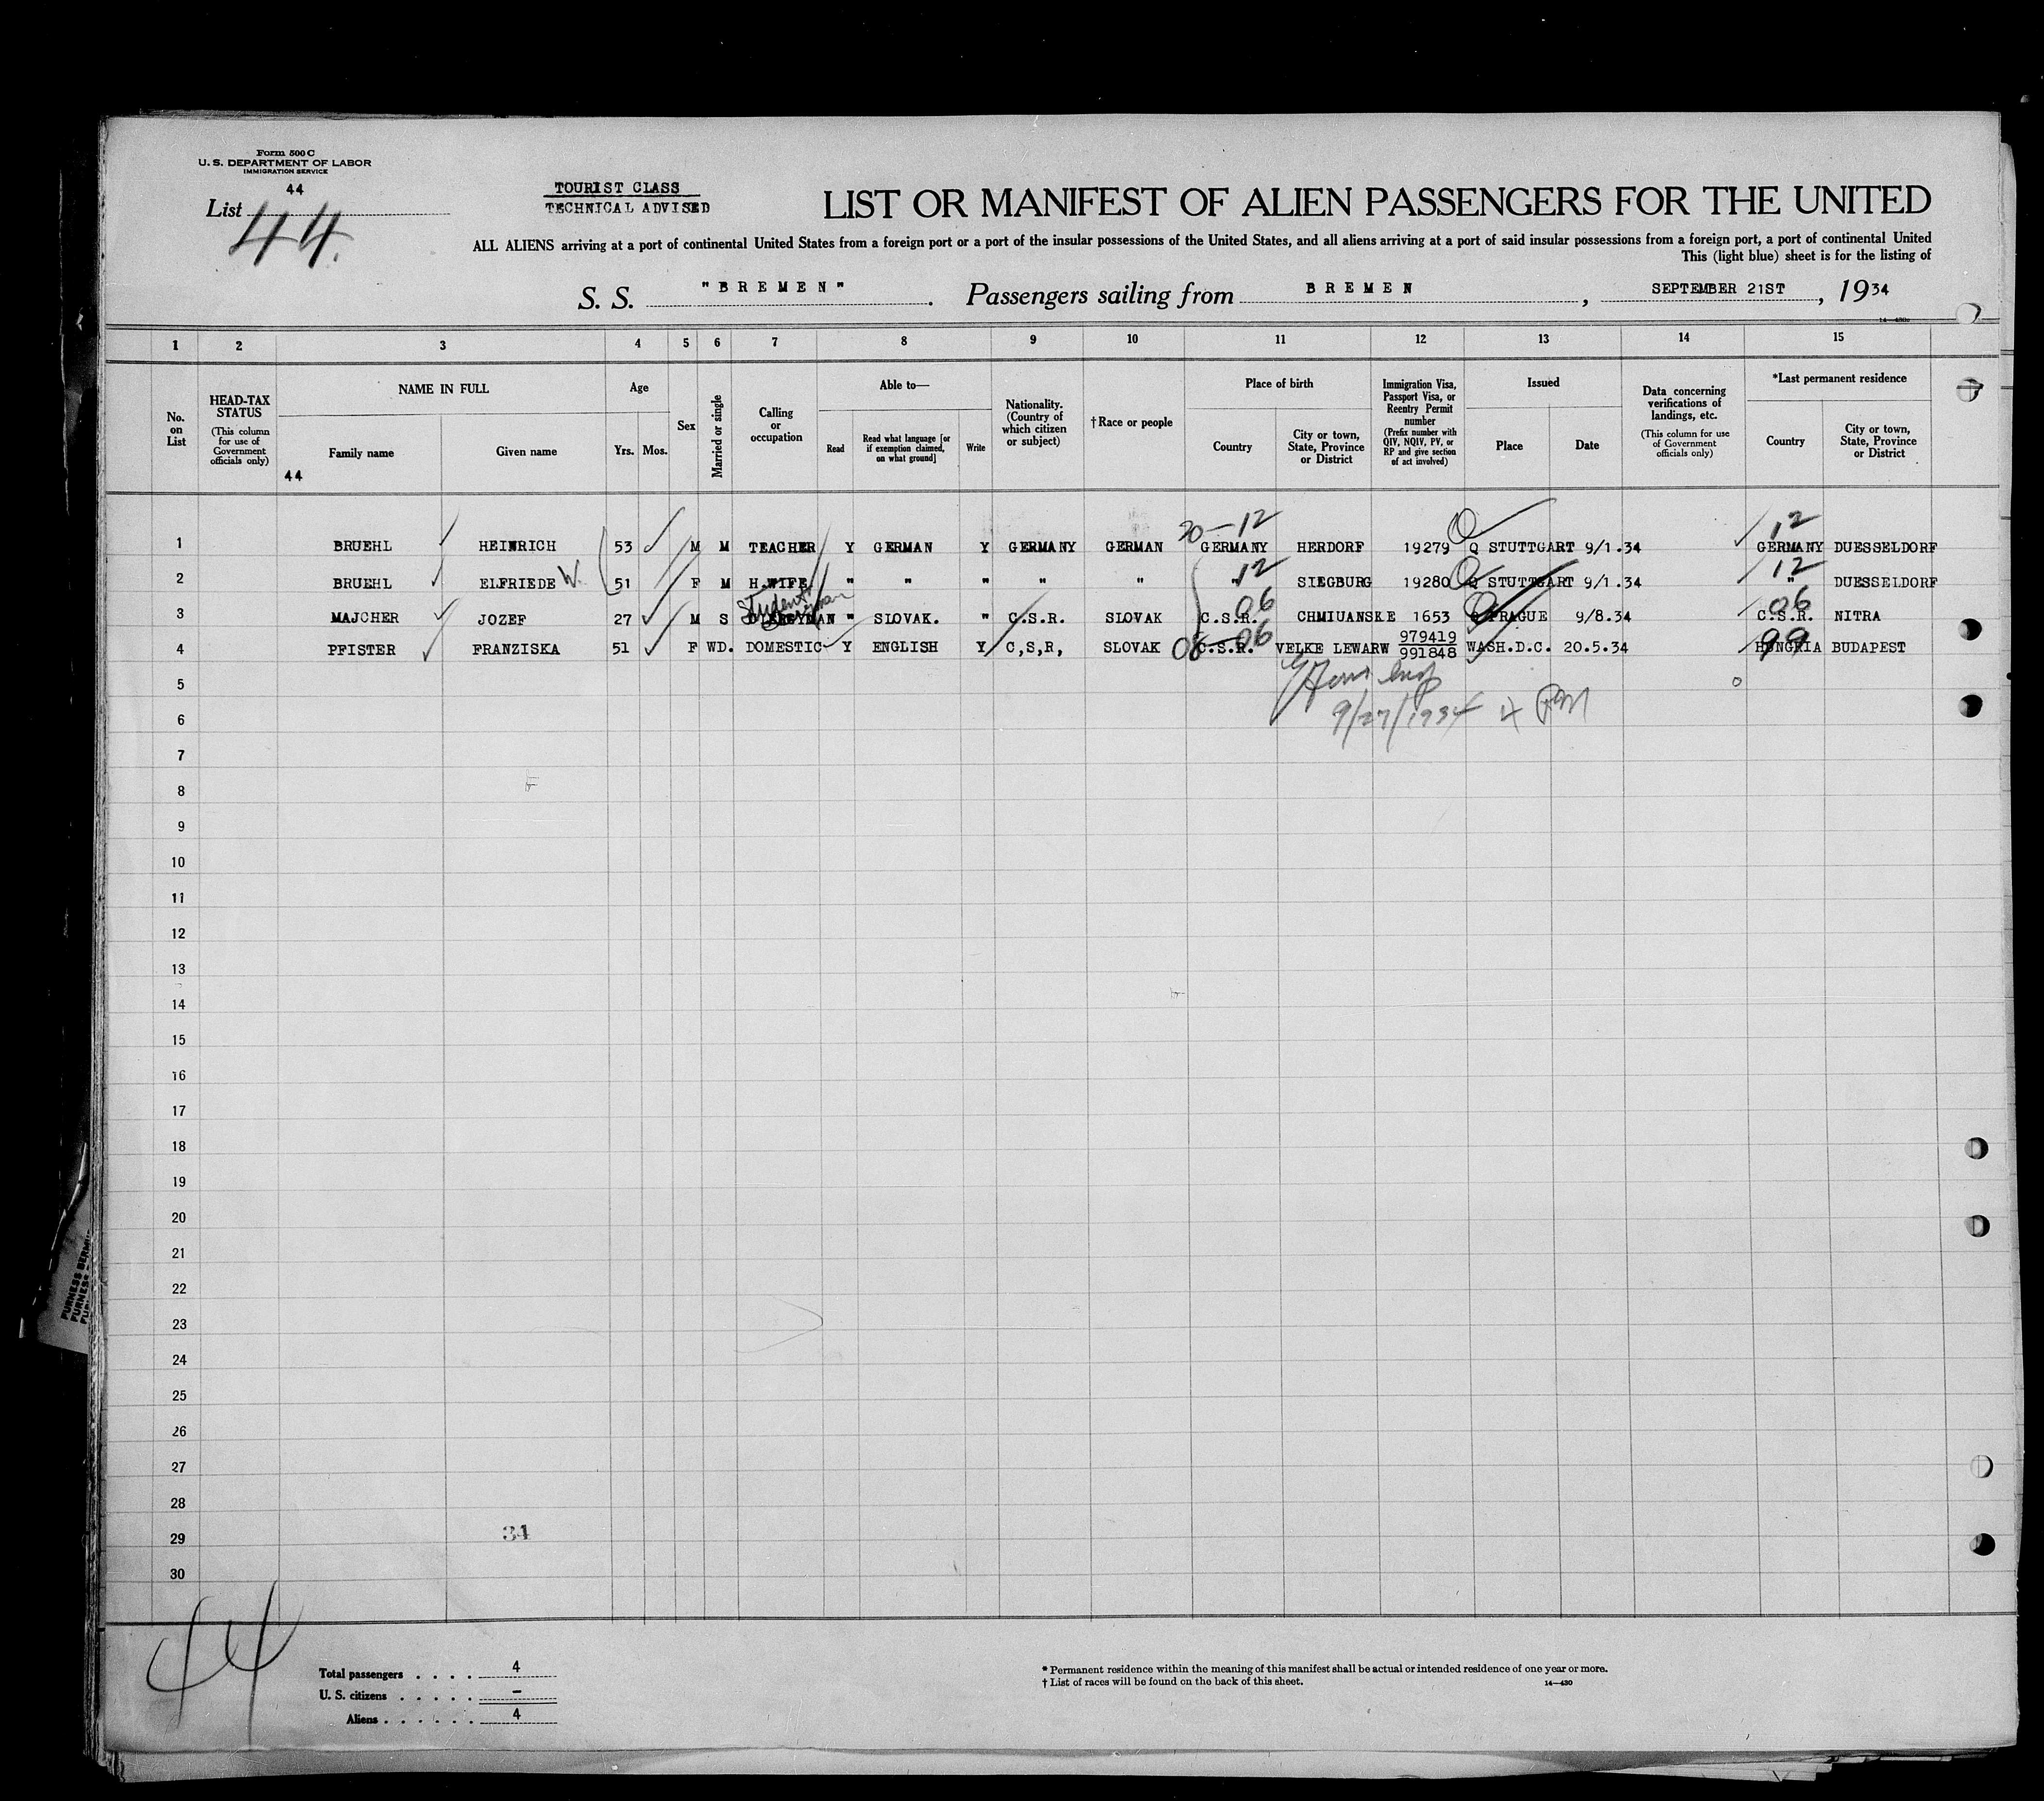 Form 500 C
U. S. DEPARTMENT OF LABOR
IMMIGRATION SERVICE
44
List
44.
TOURIST CLASS
TECHNICAL ADVISED
LIST OR MANIFEST OF ALIEN PASSENGERS FOR THE UNITED
ALL ALIENS arriving at a port of continental United States from a foreign port or a port of the insular possessions of the United States, and all aliens arriving at a port of said insular possessions from a foreign port, a port of continental United
This (light blue) sheet is for the listing of
S. S. "BREMEN". Passengers sailing from BREMEN, SEPTEMBER 21ST, 1934
1 2 3 4 5 6 7 8 9 10 11 12 13 14 15
No. on List
HEAD-TAX STATUS
(This column for use of Government officials only)
NAME IN FULL
Family name
Given name
44
Age
Yrs. Mos.
Sex
Married or single
Calling or occupation
Able to—
Read
Read what language [or if exemption claimed, on what ground]
Write
Nationality. (Country of which citizen or subject)
† Race or people
Place of birth
Country
City or town, State, Province or District
Immigration Visa, Passport Visa, or Reentry Permit number
(Prefix number with QIV, NQIV, PV, or RP and give section of act involved)
Issued
Place
Date
Data concerning verifications of landings, etc.
(This column for use of Government officials only)
*Last permanent residence
Country
City or town, State, Province or District
20-12 12
1 BRUEHL HEINRICH 53 M M TEACHER Y GERMAN Y GERMANY GERMAN GERMANY HERDORF 19279 Q STUTTGART 9/1.34 GERMANY DUESSELDORF
12 12
2 BRUEHL ELFRIEDE W. 51 F M H.WIFE. " " " " " " SIEGBURG 19280 Q STUTTGART 9/1.34 " DUESSELDORF
Student 06 06
3 MAJCHER JOZEF 27 M S CLERGYMAN " SLOVAK. " C.S.R. SLOVAK C.S.R. CHMIUANSKE 1653 Q PRAGUE 9/8.34 C.S.R. NITRA
08 06 979419 99
4 PFISTER FRANZISKA 51 F WD. DOMESTIC Y ENGLISH Y C,S,R, SLOVAK C.S.R. VELKE LEWARW 991848 WASH.D.C. 20.5.34 HUNGRIA BUDAPEST
5
9/27/1934
6
7
8
9
10
11
12
13
14
15
16
17
18
19
20
21
22
23
24
25
26
27
28
29 34
30
44
Total passengers . . . . 4
U. S. citizens . . . . . –
Aliens . . . . . . 4
* Permanent residence within the meaning of this manifest shall be actual or intended residence of one year or more.
† List of races will be found on the back of this sheet.
14—430